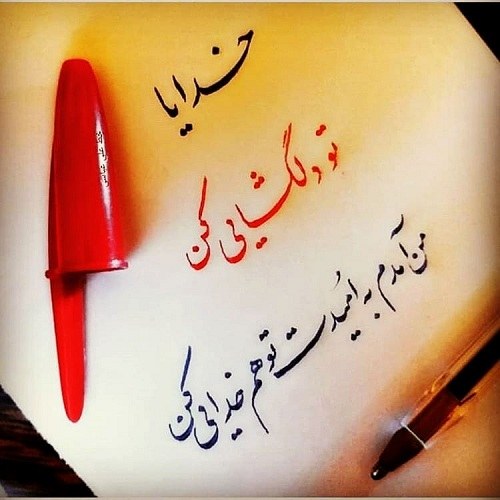 خدایا
تو دلگشایی کن
من آمدم به اُمیدت تو هم خدایی کن